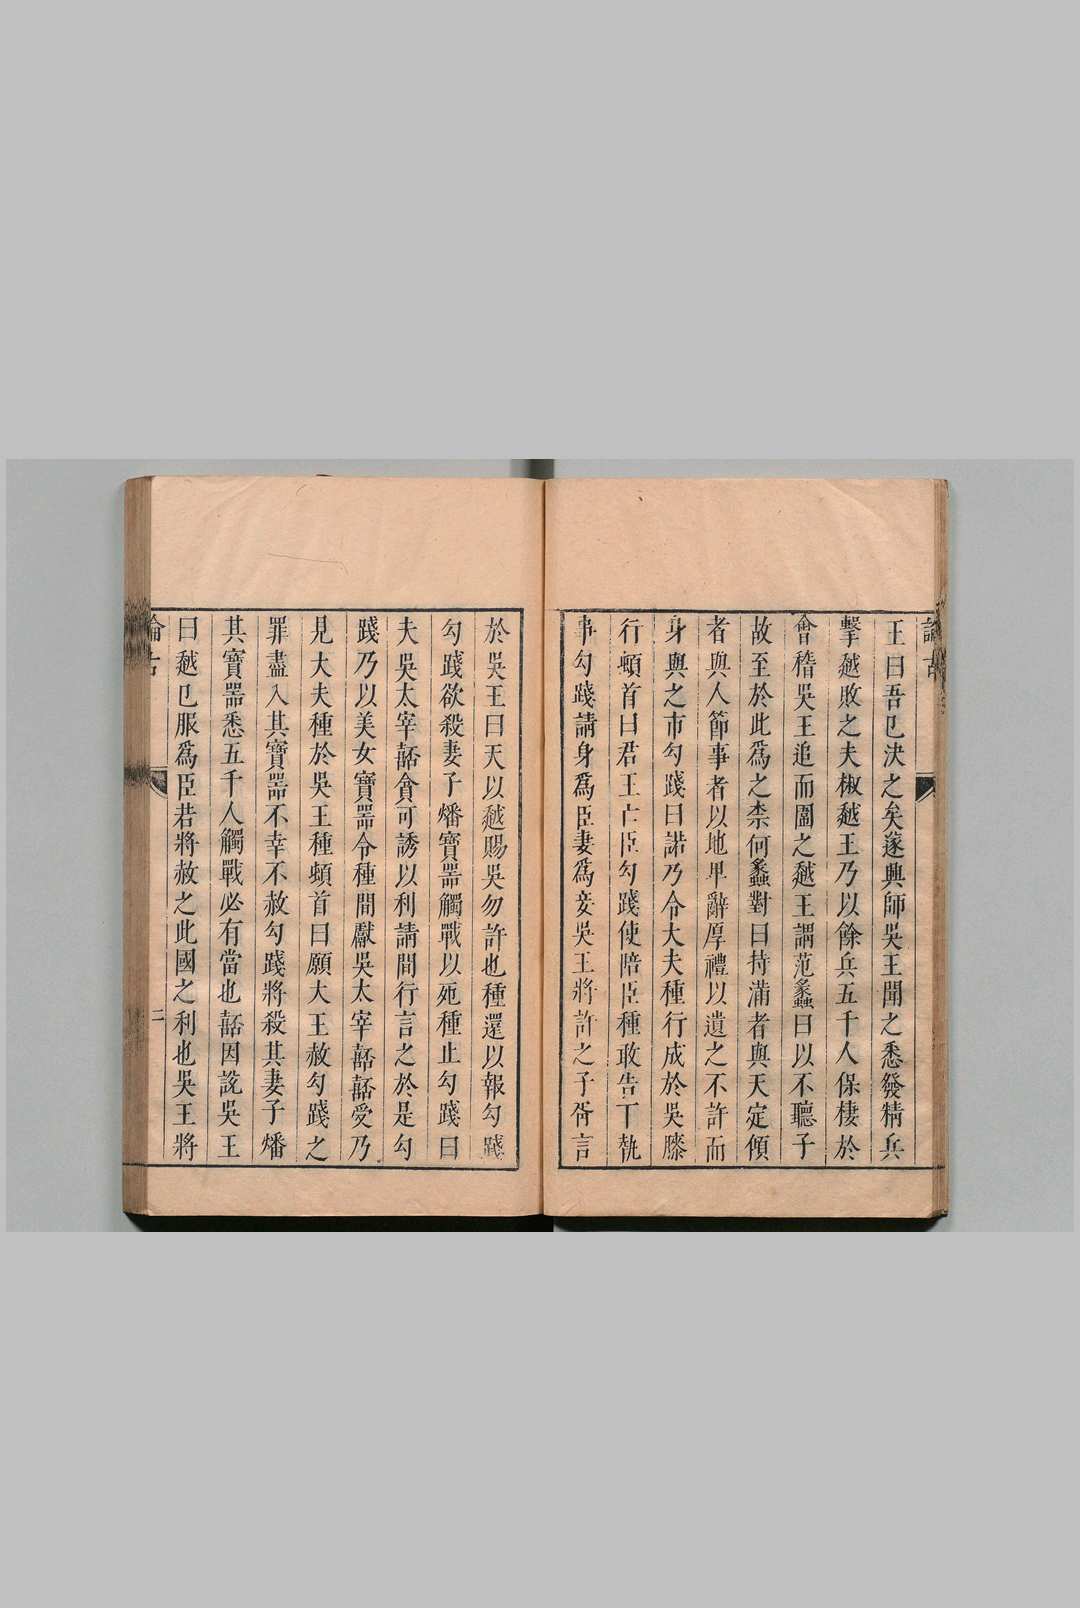 論古
王曰吾已決之矣遂興師吳王聞之悉發精兵
擊越敗之夫椒越王乃以餘兵五千人保棲於
會稽吳王追而圍之越王謂范蠡曰以不聽子
故至於此爲之柰何蠡對曰持滿者與天定傾
者與人節事者以地卑辭厚禮以遺之不許而
身與之市勾踐曰諾乃令大夫種行成於吳膝
行頓首曰君王亡臣勾踐使陪臣種敢告下執
事勾踐請身爲臣妻爲妾吳王將許之子胥言
於吳王曰天以越賜吳勿許也種還以報勾踐
勾踐欲殺妻子燔寶噐觸戰以死種止勾踐曰
夫吳太宰嚭貪可誘以利請間行言之於是勾
踐乃以美女寶噐令種間獻吳太宰嚭嚭受乃
見大夫種於吳王種頓首曰願大王赦勾踐之
罪盡入其寶噐不幸不赦勾踐將殺其妻子燔
其寶噐悉五千人觸戰必有當也嚭因說吳王
曰越已服爲臣若將赦之此國之利也吳王將
論古
二